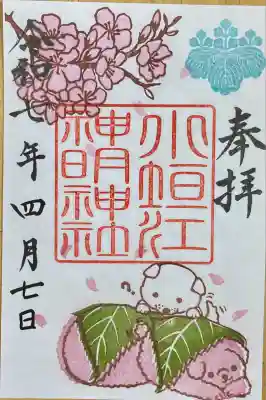 奉拝
小垣江
神明神社
令和七年四月七日